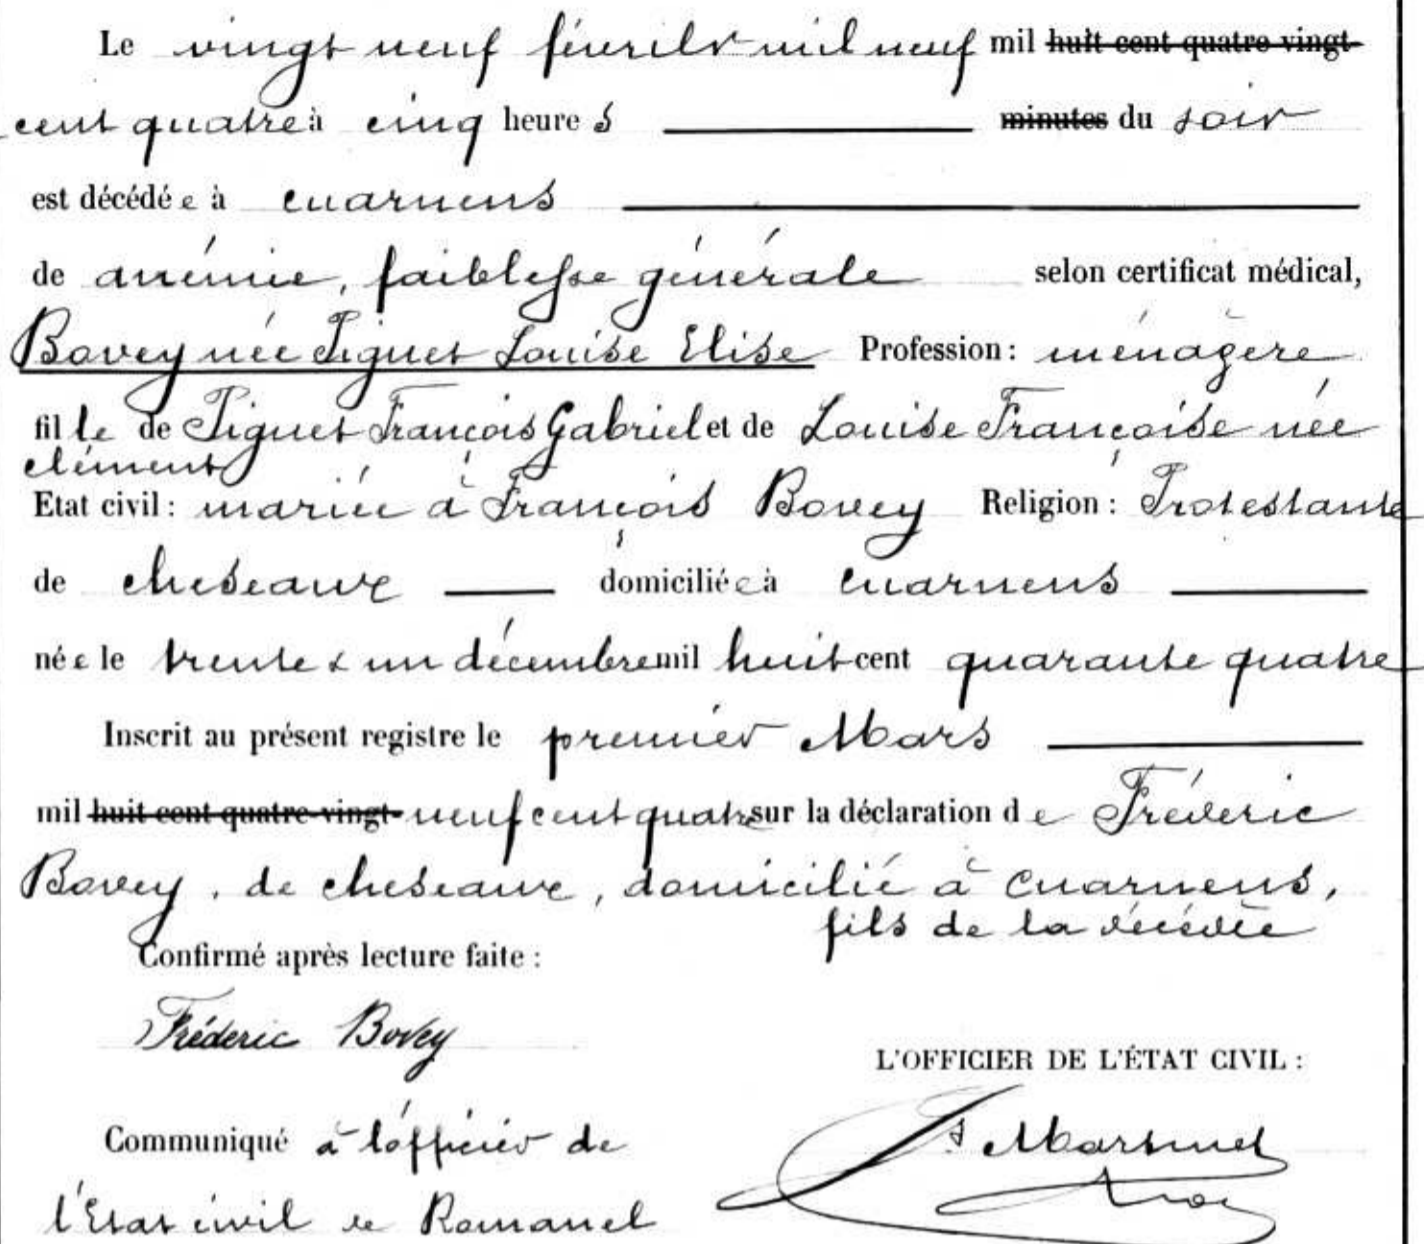 Le vingt neuf février mil neuf mil huit cent quatre-vingt-
cent quatre à cinq heure s minutes du soir
est décédé e à Cuarnens
de anémie, faiblesse générale selon certificat médical,
Bovey née Piguet Louise Elise Profession : ménagère
fil le de Piguet François Gabriel et de Louise Françoise née
Clément
Etat civil : mariée à François Bovey Religion : Protestante
de Cheseaux domicilié e à Cuarnens
né e le trente & un décembre mil huit cent quarante quatre
Inscrit au présent registre le premier Mars
mil huit cent quatre-vingt- neuf cent quatre sur la déclaration d e Fréderic
Bovey, de Cheseaux, domicilié à Cuarnens,
fils de la décédée
Confirmé après lecture faite :
Fréderic Bovey
L'OFFICIER DE L'ÉTAT CIVIL :
Communiqué à l'officier de
l'Etat civil de Romanel